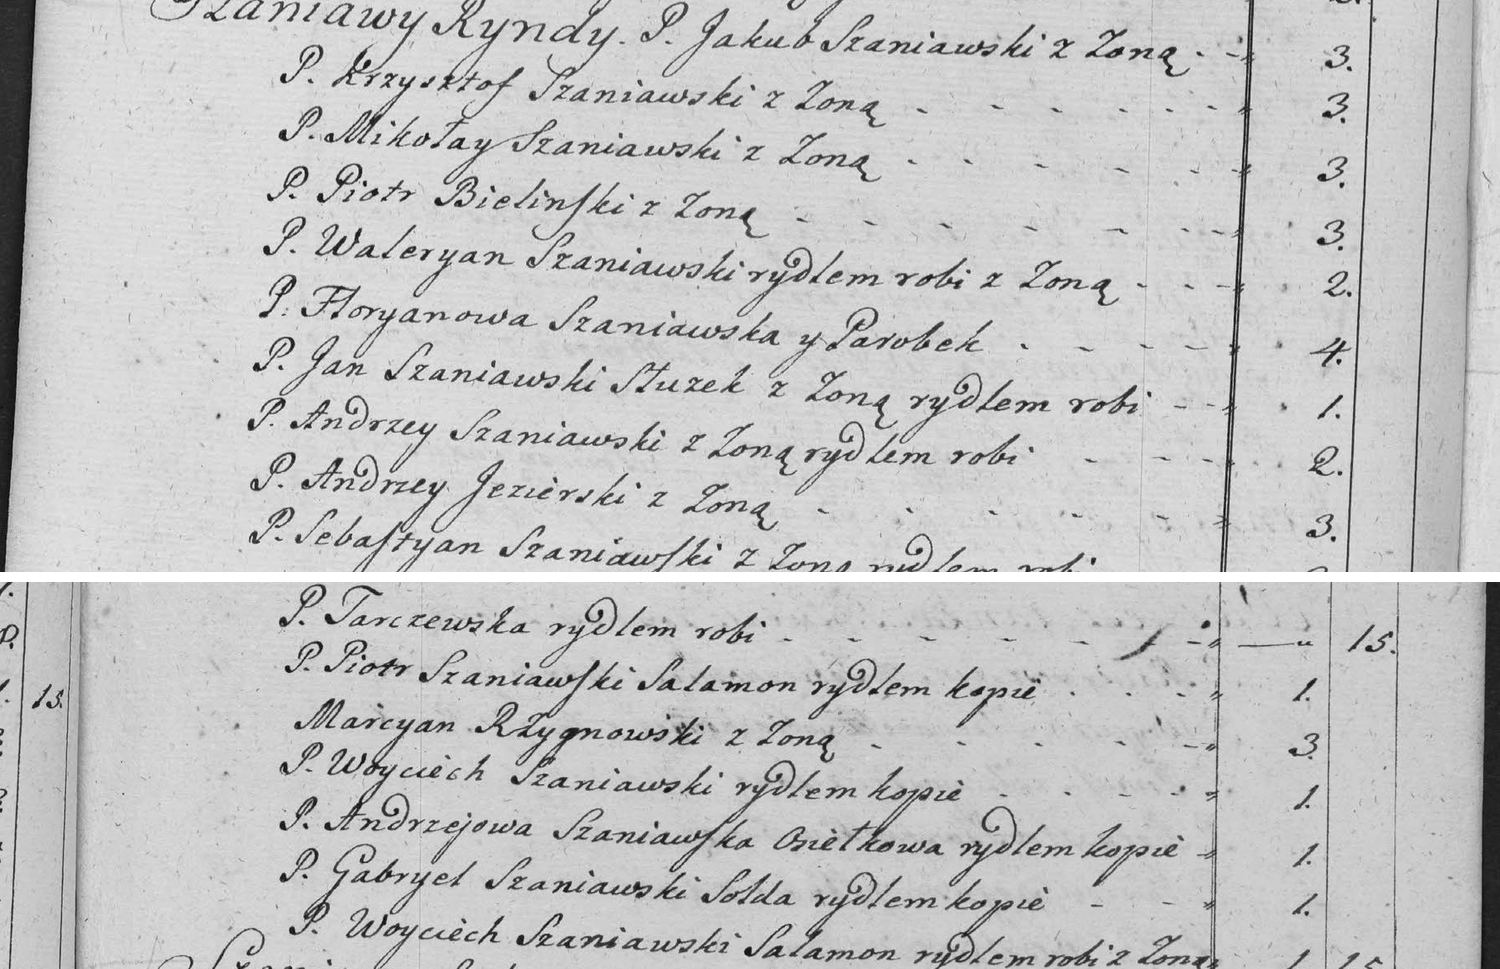 Szaniawy Ryndy. P. Jakub Szaniawski z Zoną - - 3.
P. Krzysztof Szaniawski z Zoną - - - - - - 3.
P. Mikołay Szaniawski z Zoną - - - - - - 3.
P. Piotr Bielinski z Zoną - - - - - - - 3.
P. Waleryan Szaniawski rydlem robi z Zoną - - - 2.
P. Floryanowa Szaniawska y Parobek - - - - 4.
P. Jan Szaniawski Stuzek z Zoną rydlem robi - - 1.
P. Andrzey Szaniawski z Zoną rydlem robi - - - 2.
P. Andrzey Jezierski z Zoną - - - - - - 3.
P. Sebastyan Szaniawski z Zoną rydlem robi
P. Tarczewska rydlem robi - - - - - - - — " 15.
P. Piotr Szaniawski Salamon rydlem kopie - - - 1.
15.
Marcyan Rżygnowski z Zoną - - - - - - 3.
P. Woyciech Szaniawski rydlem kopie - - - - 1.
P. Andrzejowa Szaniawska Osietkowa rydlem kopie - 1.
P. Gabryel Szaniawski Solda rydlem kopie - - - 1.
P. Woyciech Szaniawski Salamon rydlem robi z Zoną 1. 15